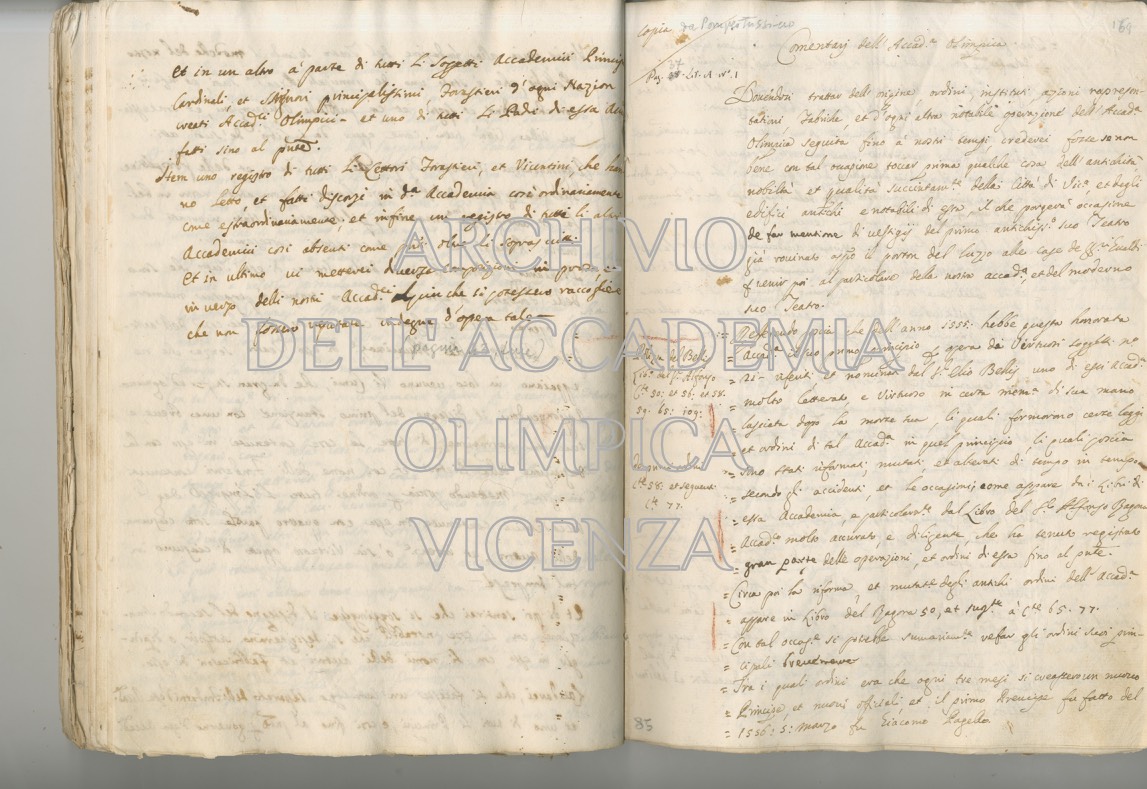 Et in un altro à parte di tutti li Soggetti Accademici Principi
Cardinali, et Signori principalissimi forestieri d'ogni Nazion
creati Accad.ci Olimpici et uno di tutti li Padri di essa Acca
fatti sino al pnte.
Item uno registro di tutti li Lettori forastieri, et Vicentini, che han
no letto, et fatti discorsi in d.a Accademia così ordinariamente
come estraordinariamente; et infine uni registro di tutti li altri
Accademici così absenti come oltre li soprascritti
Et in ultimo vi metterei diverse compositioni in prosa
in verso delli nostri Accad.ci che si potessero raccogliere
che non fossero indegne d'opera tale
copia da Pompeo Trissino
169
Comentarij dell'Accad.a Olimpica
Pag. Lit. A n.o 1
Dovendosi trattar dell'origine ordini, instituti azioni rapresen-
tationi, fabriche, et d'ogni altra notabile operazione dell'Accad.a
Olimpica seguita fino à nostri tempi crederei forse se non
bene con tal occasione toccar prima qualche cosa dell'antichità
nobiltà et qualità succintam.te della Città di Vic.a et degli
edifici antichi e notabili di essa, il che porgerà occasione
de far mentione di vestigij del primo antichiss.o suo Teatro
già rovinato appo il porton del Luzzo alle case de Gualdi
venir poi al particolare della nostra accad.a, et del moderno
suo Teatro.
= Ottenuto pria che dell'anno 1555: hebbe questa honorata
= Accad.a il suo primo principio opera da Virtuosi soggetti no
= et nominati dal S.r Elio Bellis uno di essi Accad.
= molto letterato e Virtuoso in certa mem.a di sua mano
= lasciata dopo la morte sua, li quali formorno certe leggi
= et ordini di tal Accad.a in quel principio, li quali poscia
= sono stati riformati, mutati, et alterati di tempo in tempo
= secondo gli accidenti, et le occasioni, come appare da i libri di
= essa Accademia, e particolarm.te dal Libro del S.r Alfonso Ragona
Accad.o molto accurato, e diligente, che ha tenuto registrato
= gran parte delle operazioni, et ordini di essa fino al pnte.
= Circa poi la riforma, et mutat.ne degli antichi ordini dell'Accad.a
= appare in Libro del Ragona 50, et seg.te à c.te 65. 77.
= Con tal occas.e si potrebbe sumariam.te refar gli ordini suoi prin-
= cipali brevemente
= Fra i quali ordini era che ogni tre mesi si creassero un nuovo
= Principe et nuovi officiali, et il primo Prencipe fu fatto del
= 1556: 5: marzo fu Giacomo Pagello.
del Bellis
Lib.o del S.r Alfonso
C.te 30: et 36: et 58.
59: 65: 109:
C.te 58: et sequenti
C.te 77.
85
ARCHIVIO
DELL'ACCADEMIA
OLIMPICA
VICENZA